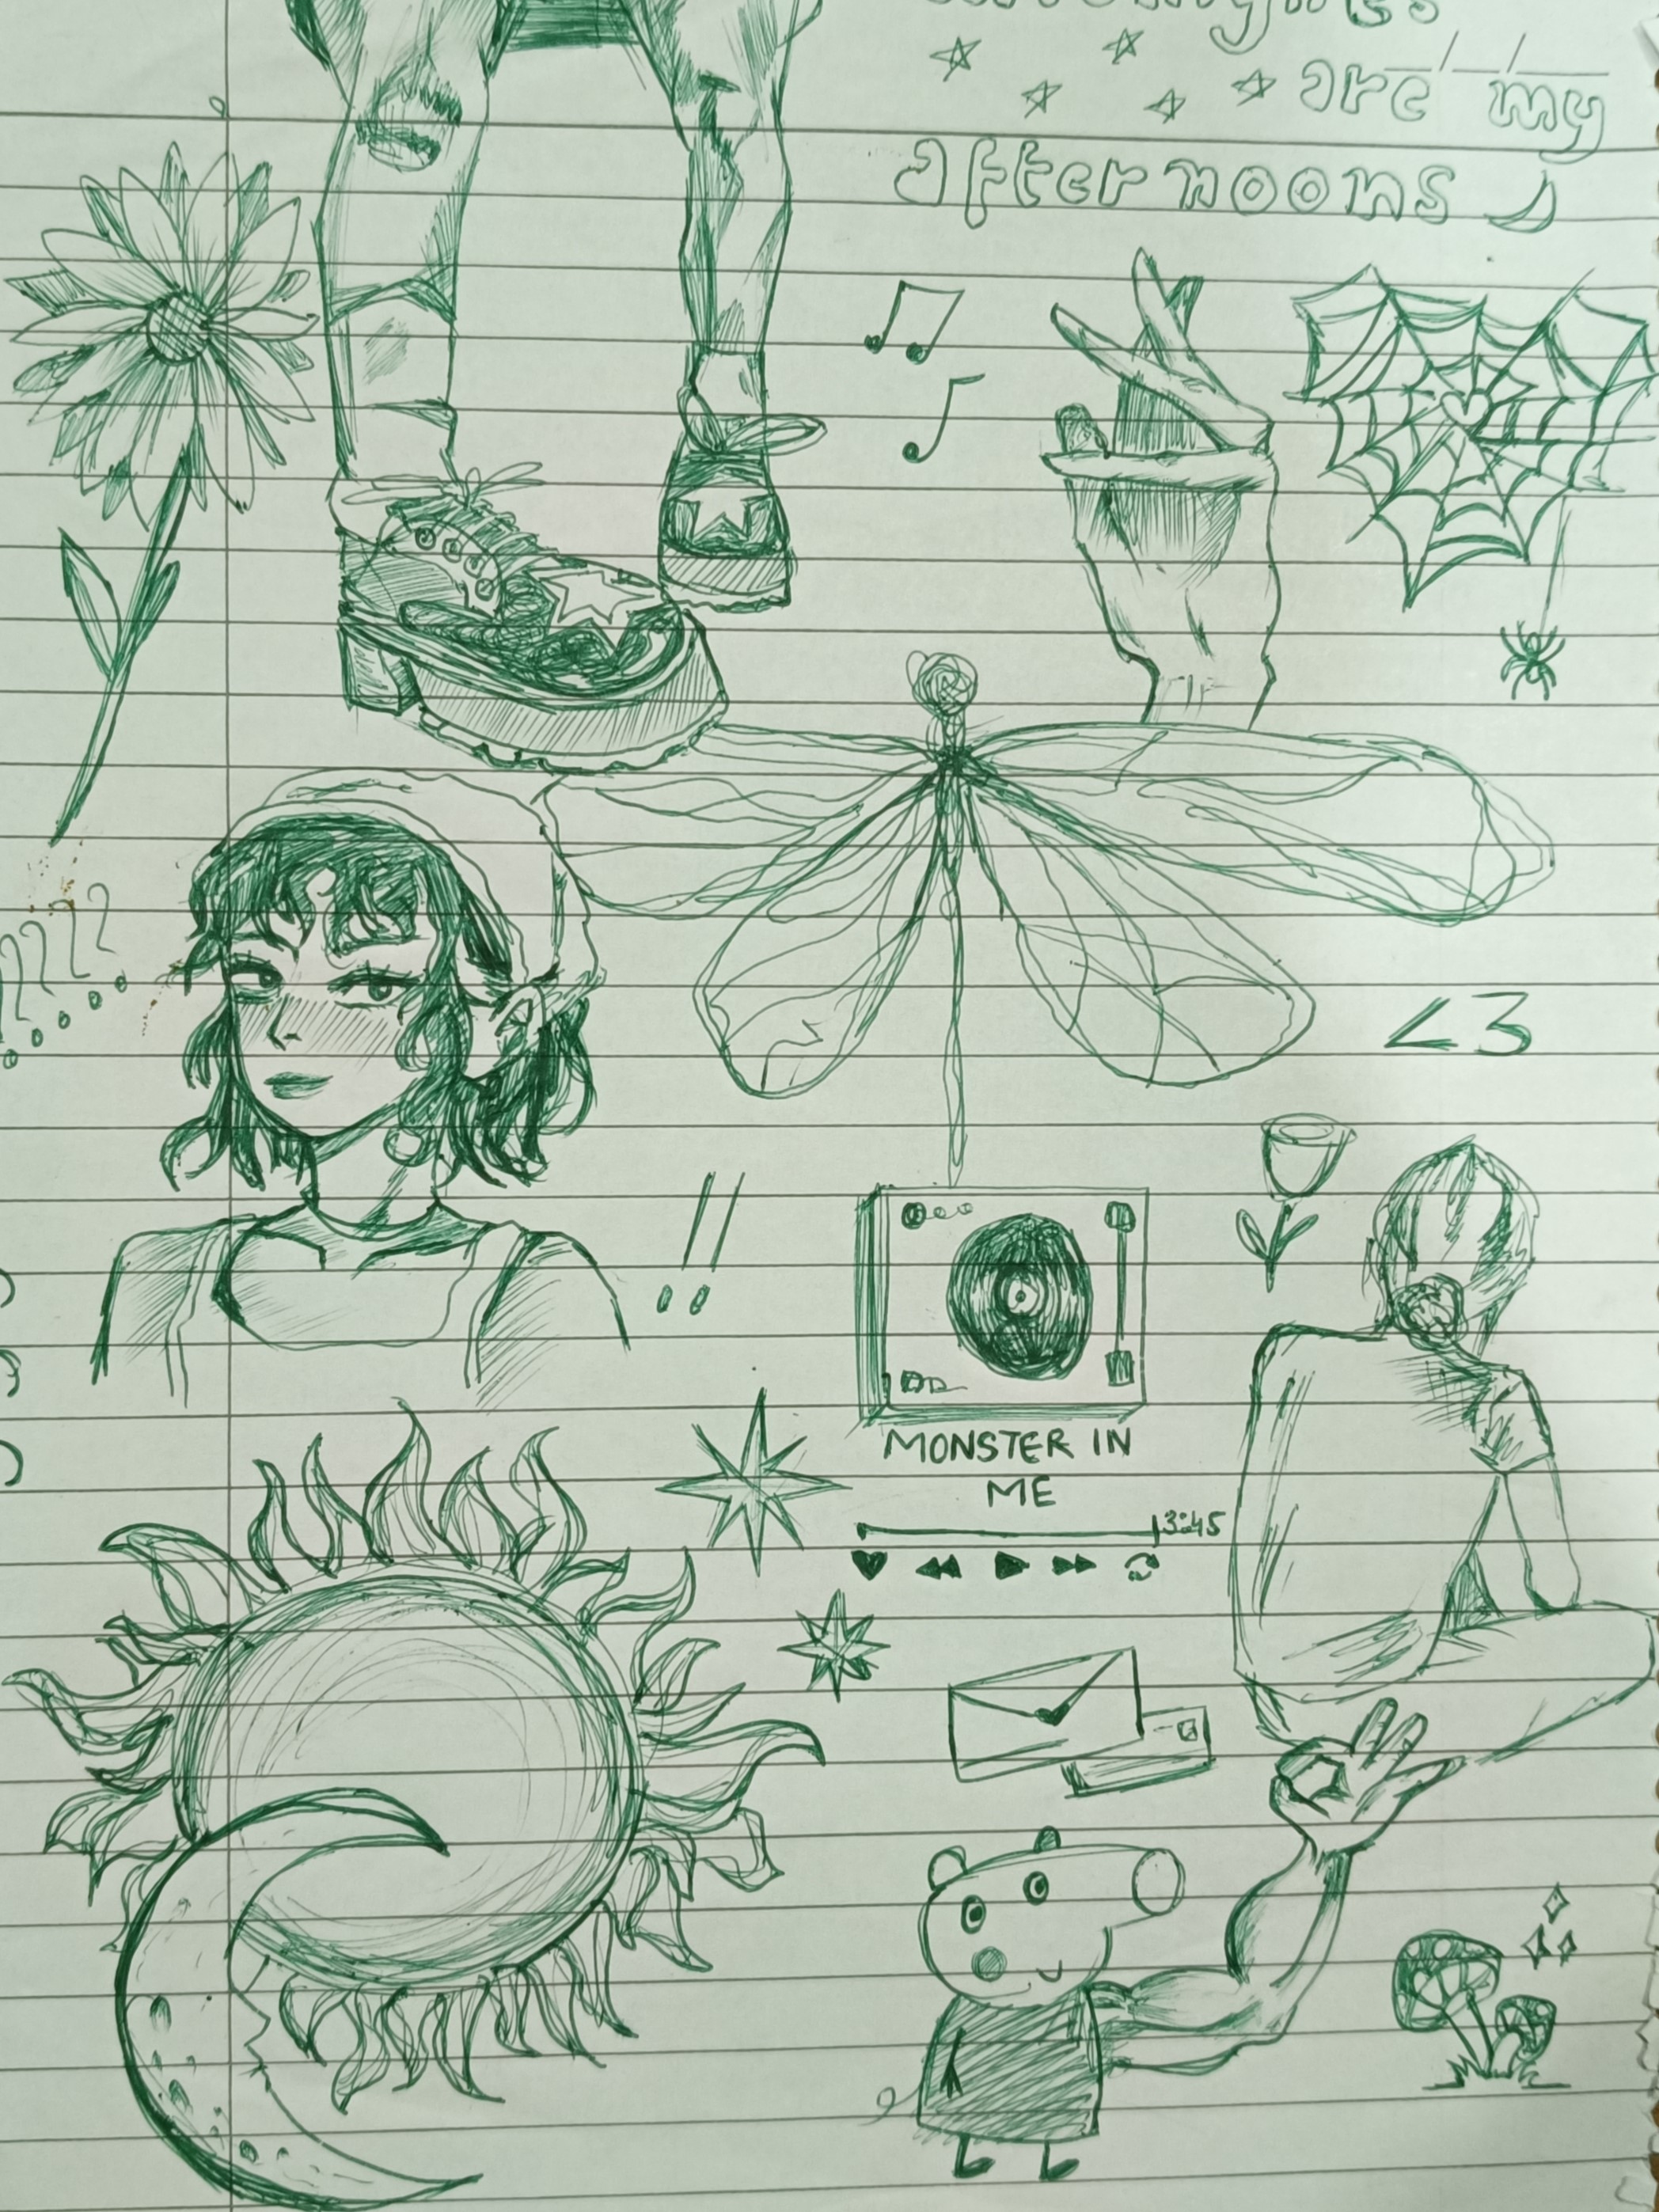 are my
afternoons
<3
!!
MONSTER IN
ME
3:45